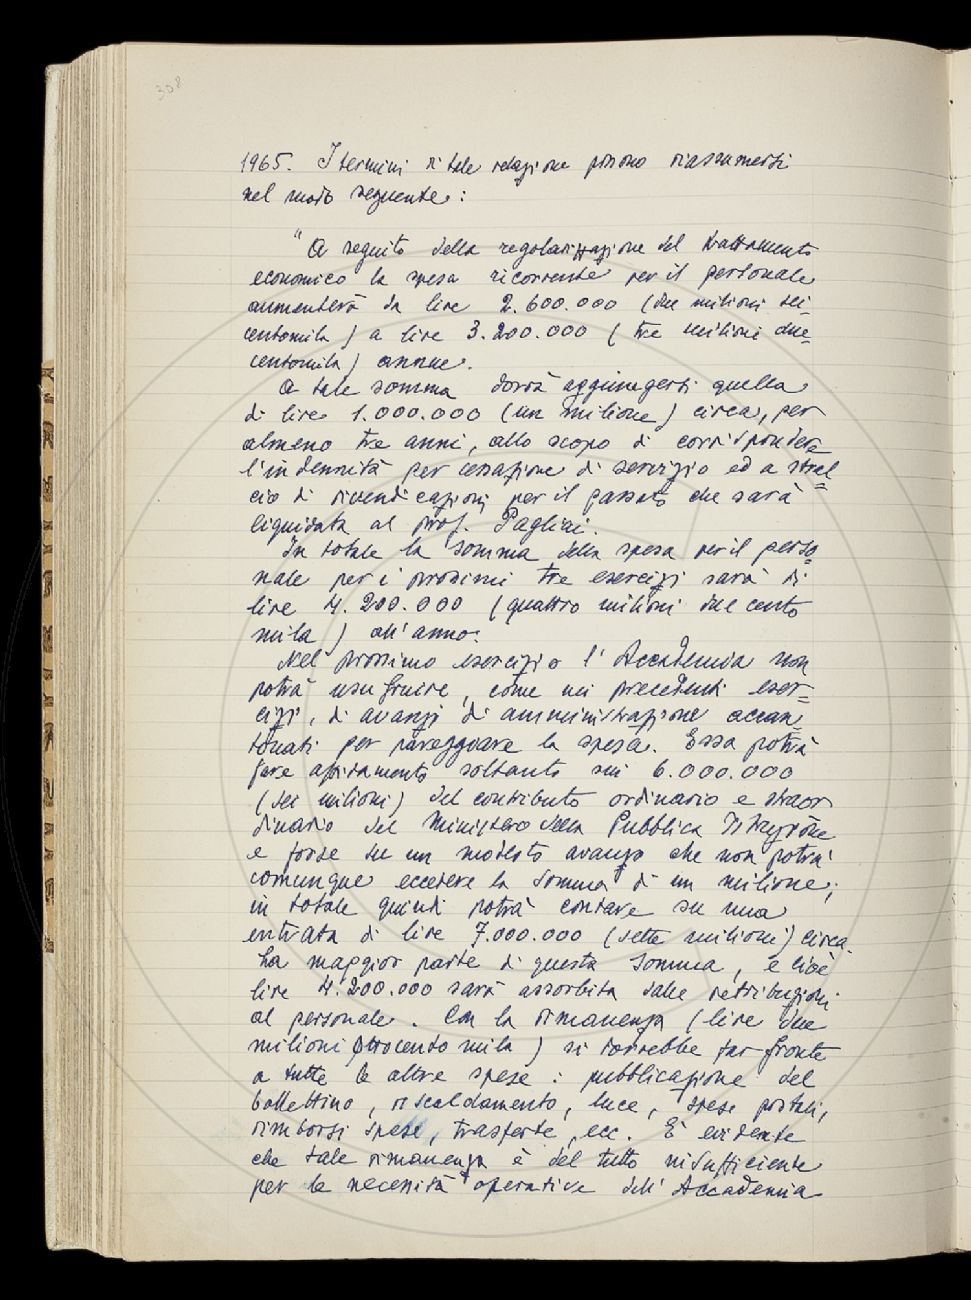 308
1965. I termini di tale relazione possono riassumersi
nel modo seguente:
"A seguito della regolarizzazione del trattamento
economico la spesa ricorrente per il personale
aumenterà da lire 2.600.000 (due milioni sei-
centomila) a lire 3.200.000 (tre milioni due=
centomila) annue.
A tale somma dovrà aggiungersi quella
di lire 1.000.000 (un milione) circa, per
almeno tre anni, allo scopo di corrispondere
l'indennità per cessazione di servizio ed a stral=
cio di rivendicazioni per il passato che sarà
liquidata al prof. Pagliai.
In totale la somma della spesa per il perso=
nale per i prossimi tre esercizi sarà di
lire 4.200.000 (quattro milioni duecento
mila) all'anno.
Nel prossimo esercizio l'Accademia non
potrà usufruire, come nei precedenti eser=
cizi, di avanzi di amministrazione accan=
tonati per pareggiare la spesa. Essa potrà
fare affidamento soltanto sui 6.000.000
(sei milioni) del contributo ordinario e straor
dinario del Ministero della Pubblica Istruzione
e forse su un modesto avanzo che non potrà
comunque eccedere la somma di un milione;
in totale quindi potrà contare su una
entrata di lire 7.000.000 (sette milioni) circa.
La maggior parte di questa somma, e cioè
lire 4.200.000 sarà assorbita dalle retribuzioni
al personale. Con la rimanenza (lire due
milioni ottocentomila) si dovrebbe far fronte
a tutte le altre spese: pubblicazione del
bollettino, riscaldamento, luce, spese postali,
rimborsi spese, trasferte, ecc. È evidente
che tale rimanenza è del tutto insufficiente
per le necessità operative dell'Accademia